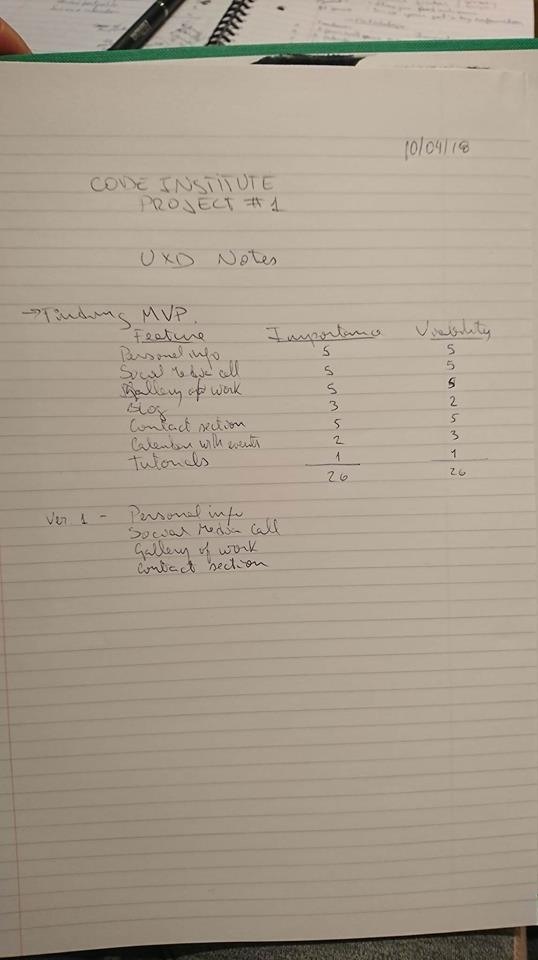 10/04/18
CODE INSTITUTE
PROJECT #1
UXD Notes
→ Finding MVP.
Feature Importance Viability
Personal info 5 5
Social Media call 5 5
Gallery of work 5 5
Blog 3 2
Contact section 5 5
Calendar with events 2 3
Tutorials 1 1
26 26
Ver. 1 - Personal info
Social Media call
Gallery of work
Contact section